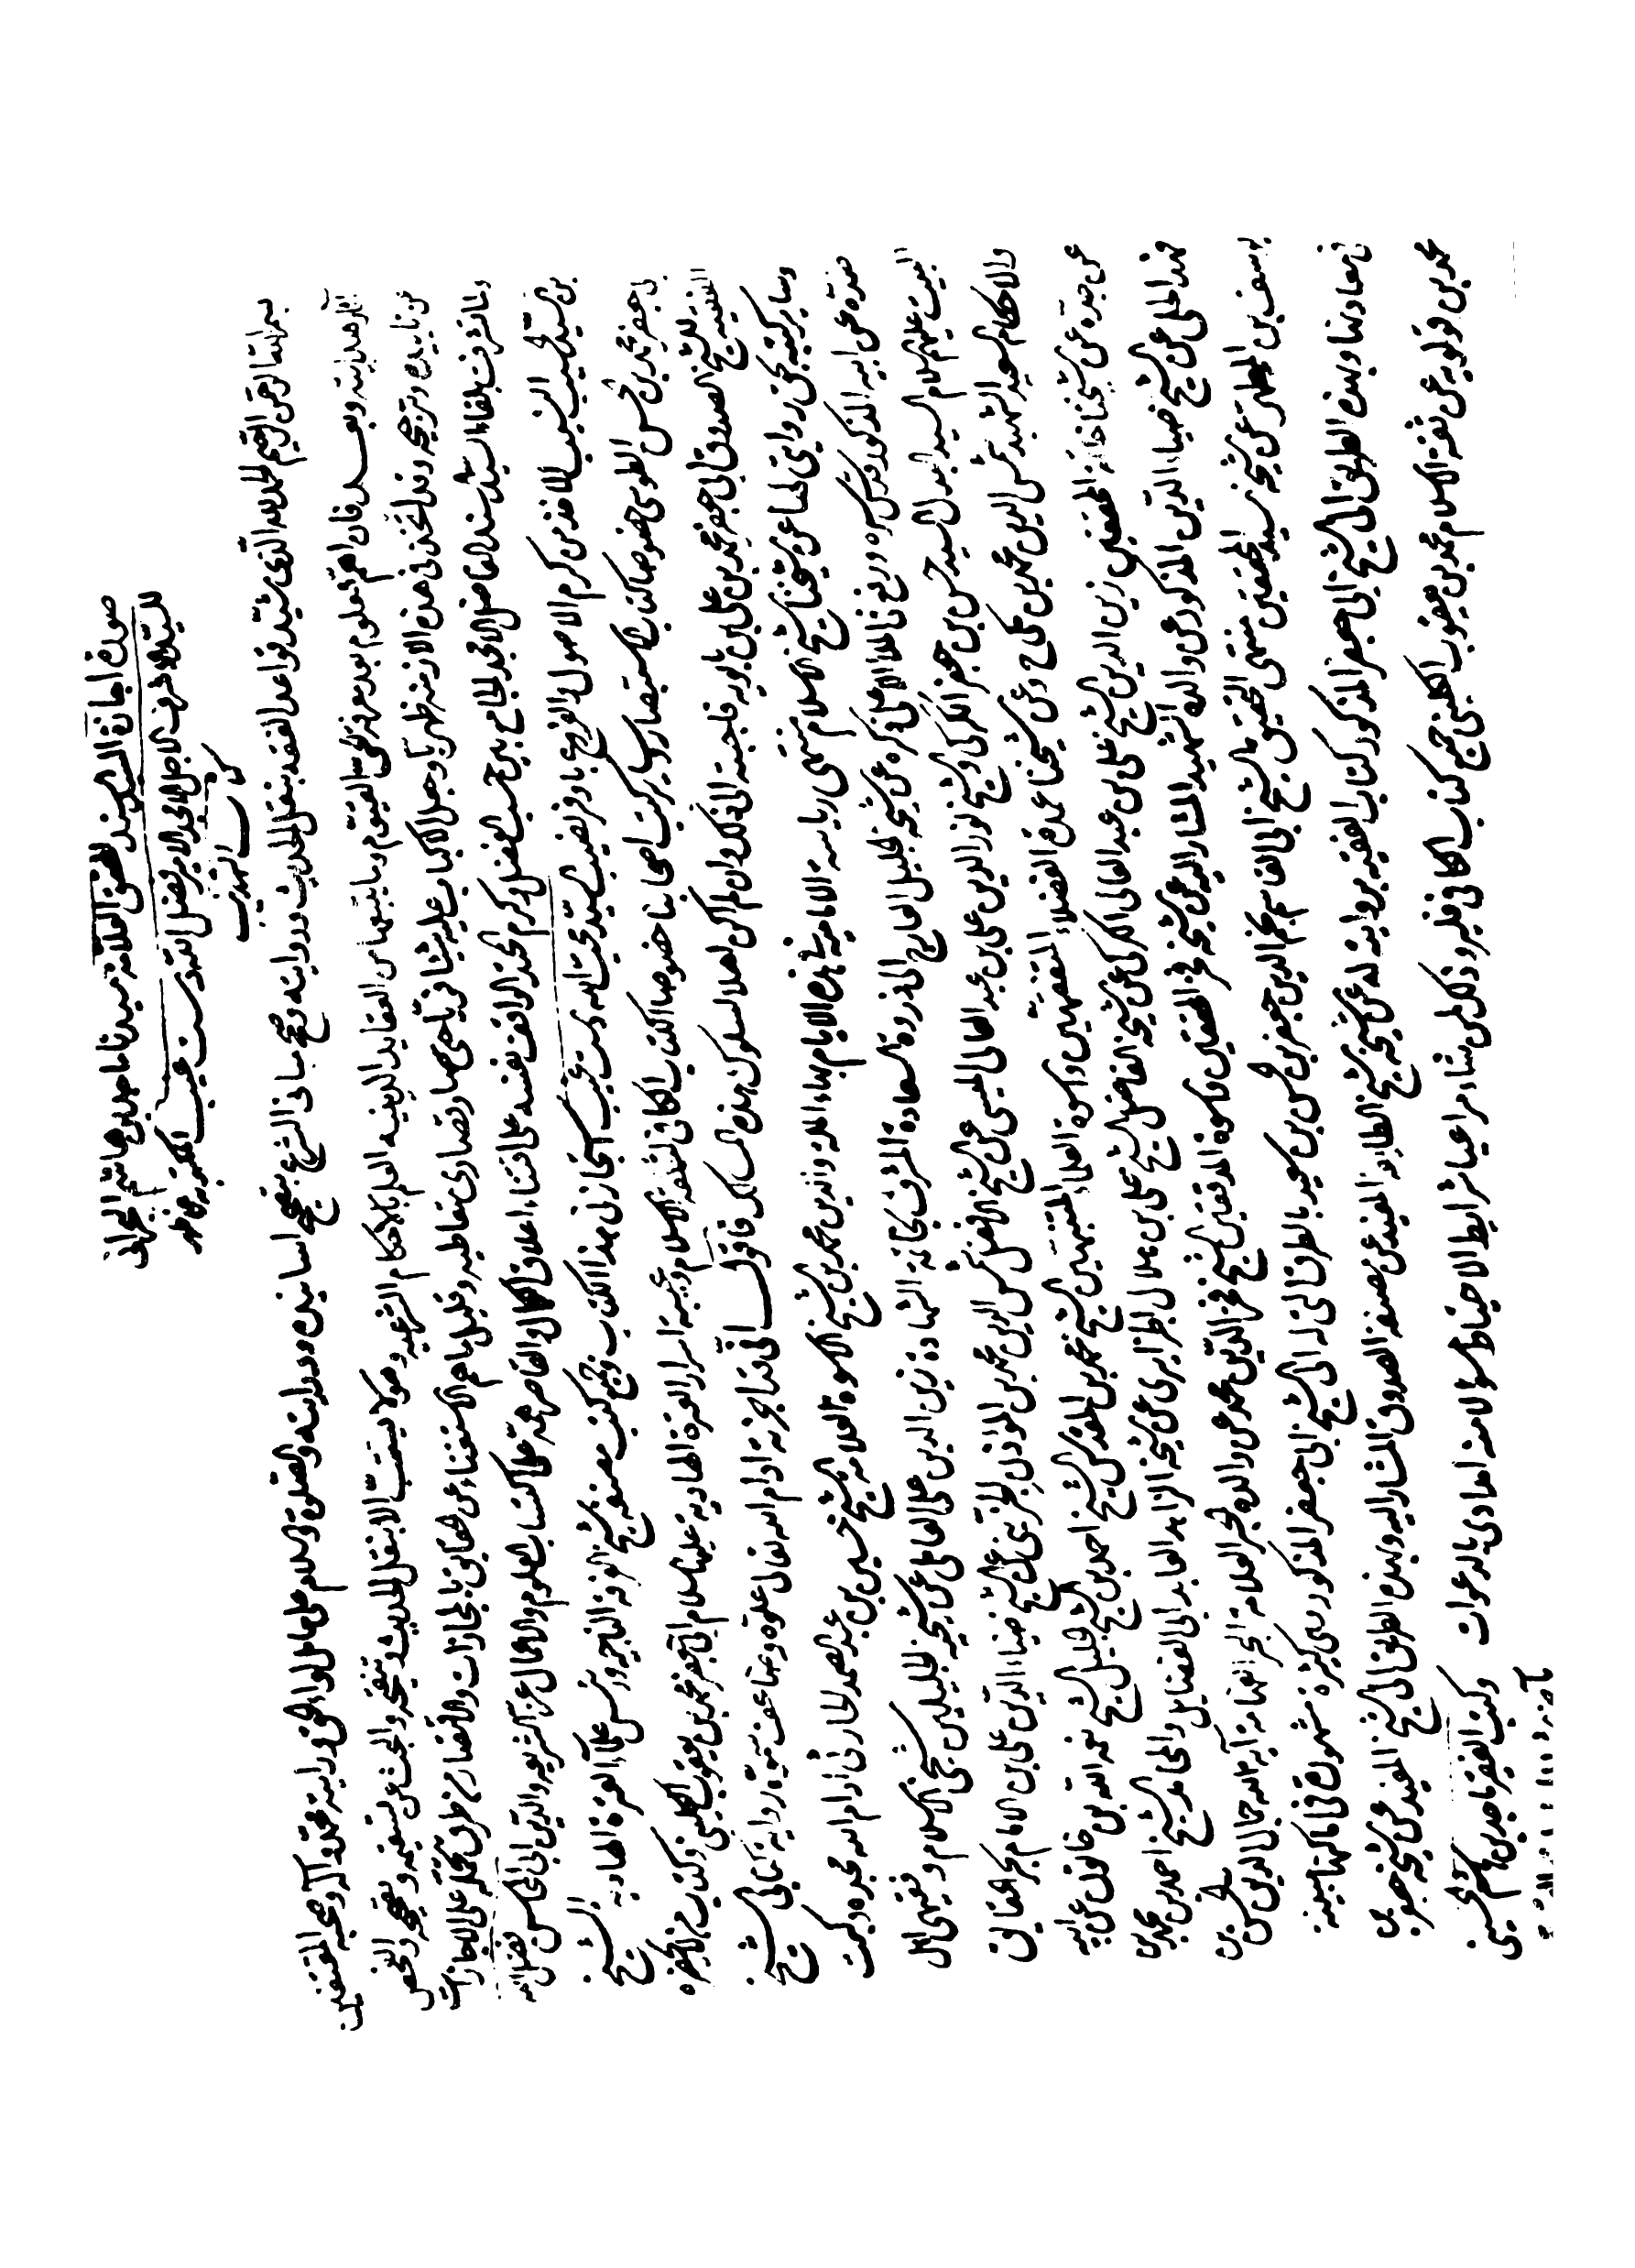 صورة اجازة السيد السند المحقق العلامة سيدنا ماجد بن هاشم البحرانى
للسيد الاشرف الاجل الامجد الامير فضل الله دست غيب المكتوبة على ظهر
كتاب التهذيب
بسم الله الرحمن الرحيم الحمد لله الذى شيد قواعد الفقه بنقل الحديث وروايته وصحح مبانى الشرع بتصحيح اسانيده ودرايته والصلوة والسلام على حامل لواء الحق ورايته محمد وآله وصحبه المقتفين
آثار هدايته وبعد فان اهم العلوم بعد معرفة الحى القيوم وما يتبعها من العقايد الدينية العلم بالاحكام الشرعية وهو لا يستتب الا بنقل الحديث وتنقيحه والبحث عن سقيمه وصحيحه والفحص
عن تأييده وترجيحه وقد اتخذ فى هذه الازمنة ظهريا وجعل الاكباب عليه شيئا فريا حتى صار قصارى متعاطيه وقليل ما هم الاستغناء عن الحقايق بالمجازات والاقتصار من طرق تحمله على الاجازات
ولما تشرفت بلقاء السيد السند الفاضل الامجد الجامع بين حسب الفضل وكرم المحتد الواقف نفسه على اقتناء اعلاق الكمال والقاصر همته على اكتساب العلوم والاعمال عز الشريعة والدين ابى المحاسن فضل الله
بن السيد الحسيب النسيب الاخذ من كرم الاصول والفروع باوفر نصيب السيد محب الله دست غيب استجازنى هذا الكتاب وجميع كتب مصنفه شيخ الفرقة الناجية ورئيس علماء العترة الهادية الشيخ
ابى جعفر محمد بن الحسن الطوسى خصوصا كتاب الاستبصار وساير كتب اصحابنا خصوصا الكتاب الكافى لثقة الاسلام وعيبة اسرار العترة الهادية عليهم السلام ابى جعفر محمد بن يعقوب الكلينى وكتاب من لا يحضره
الفقيه للشيخ الصدوق ابى جعفر محمد بن على بن بابويه فاجبته الى ذلك وان لم اكن اهلا لسلوك هذه المسالك فاقول انى قد اجزت له ادام الله تعالى علوه وضاعف سموه رواية كتابى الشيخ
وساير كتبه بحق روايتى لها عن شيخنا شيخ الاسلام منتهى رياسة الامامية فى هذه الايام بهاء الملة والدين محمد بن الشيخ الاسوة العلامة الشيخ حسين بن عبد الصمد الحارثى ادام الله مجده وكبت
ضده عن ابيه المذكور قدس سره ورفع فى الملأ الاعلى ذكره عن شيخه الجليل العارج الى ذروة السعادة المشرف بخاتمة الشهادة زين الدين على العاملى عن شيخيه الجليلين شيخى الاسلام وفقيهى اهل
البيت عليهم السلام السيد المبجل السيد حسن بن جعفر الكركى والشيخ نور الدين على بن عبد العالى الميسى عن الشيخ الافضل شمس الدين محمد بن المؤذن الجزينى عن الشيخ ضياء الدين على بن الامام بحر الحقايق
والاحكام السعيد الشهيد شمس الدين محمد بن مكى ح وعن شيخنا عمدة الفضلاء المتفقهين واسوة العلماء المتنبهين الشيخ محمد بن المقدس الشيخ احمد بن الشيخ الجليل الشيخ نعمة الله بن خاتون عن ابيه
عن جده عن شيخنا خاتمة المحققين زين الدين الشيخ على بن عبد العالى الكركى عن شيخه الفاضل الشيخ على بن هلال الجزايرى عن شيخه الزاهد العابد ابى الفضايل والمحامد الشيخ احمد بن محمد بن
فهد الحلى عن الشيخ ضياء الدين المذكور عن والده الشهيد المشار اليه عن شيخه فخر المحققين واسوة المدققين الشيخ فخر الدين محمد عن والده الحبر العلامة البحر الفهامة آية الله جمال الدين الحسن بن
يوسف بن المطهر عن شيخه رئيس المحققين منتهى التحقيق الشيخ ابى القاسم نجم الدين جعفر بن الحسن بن سعيد بالطرق التى له الى الشيخ ابى جعفر المذكور وهى كثيرة مشهورة فى اماكنها مبينة
فى معادنها وبهذه الطريق الى الشيخ ابى جعفر المذكور كتاب الفقيه بروايته له عن شيخه شيخ الطايفة المفيد عن مصنفه الصدوق المشار اليه وبهذه الطريق الى الشيخ المفيد عن شيخه جعفر بن
محمد بن قولويه عن ثقة الاسلام محمد بن يعقوب الكلينى جميع كتاب الكافى فليرو ذلك لمن شاء مراعيا شرايط الاحتياط سؤلا منه امدادى بالدعوات
وكتب الفقير ماجد بن هاشم الحسينى